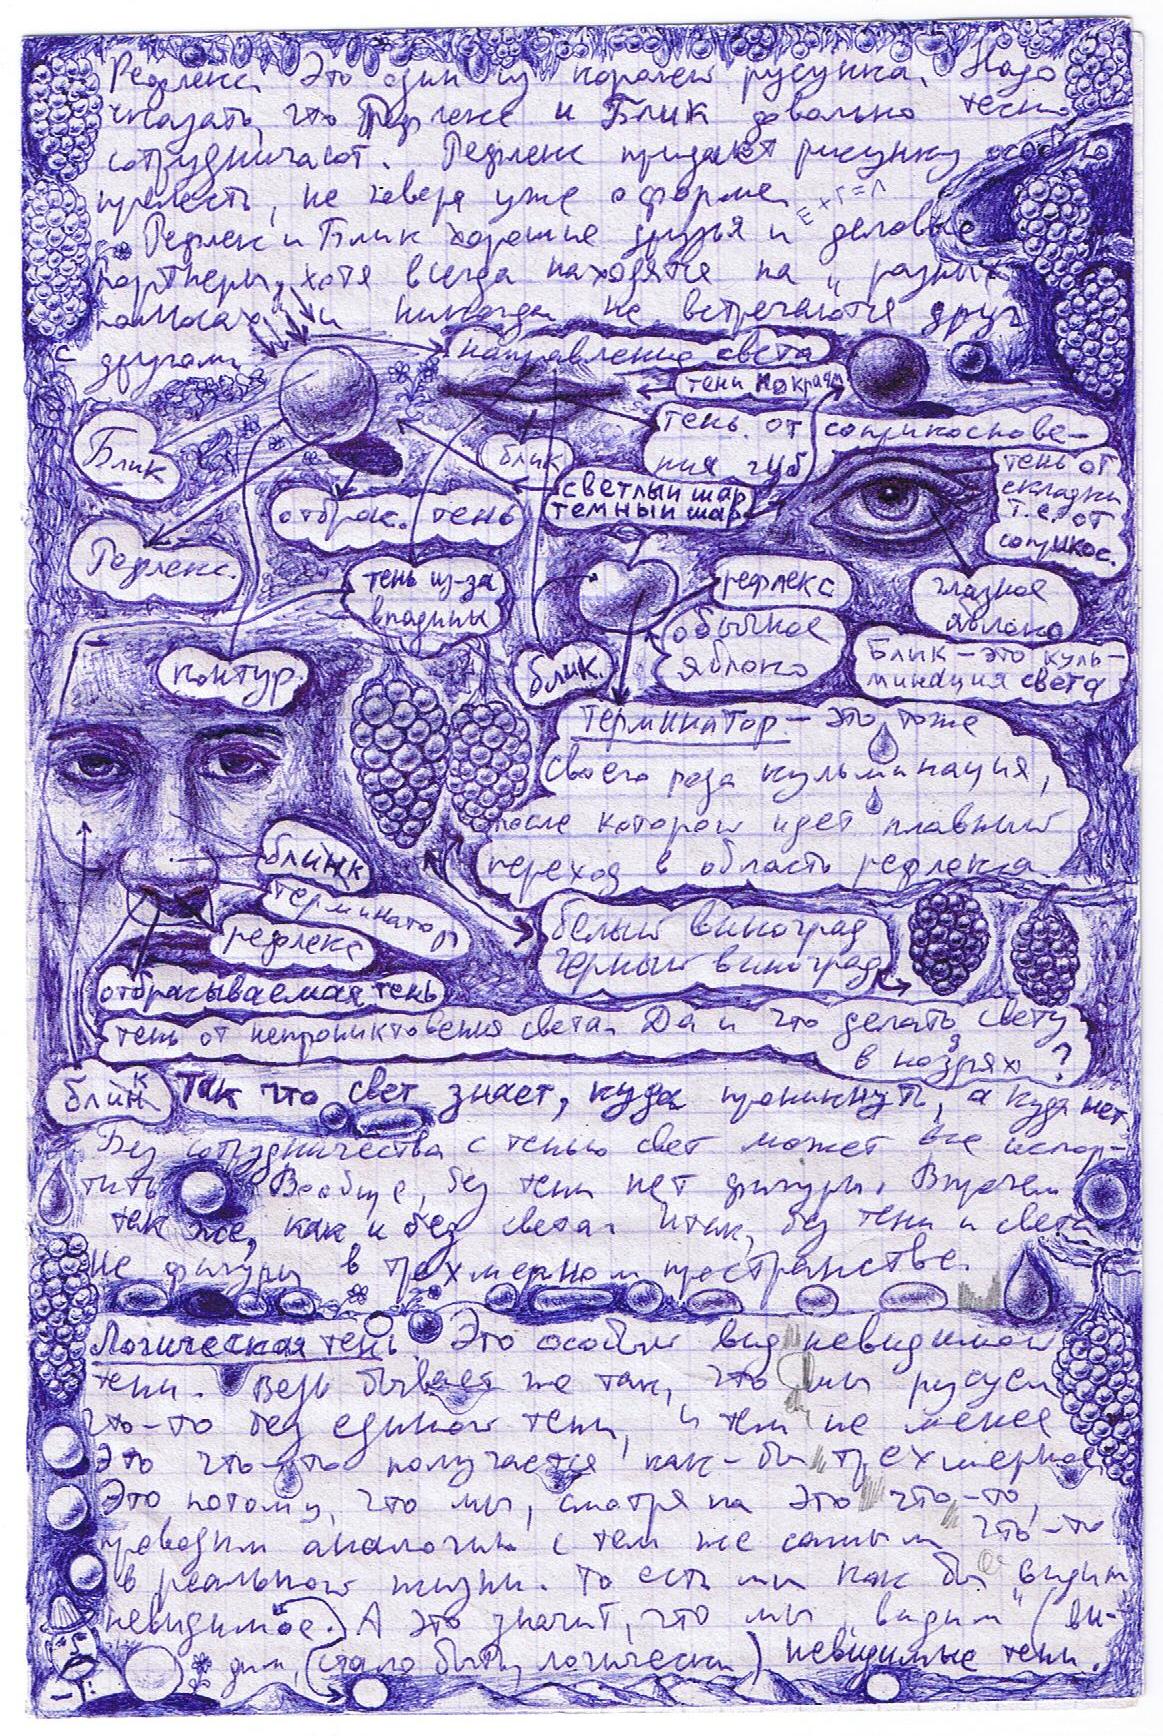 Рефлекс. Это один из королей русунка. Надо
сказать, что Рефлекс и Блик довольно тесно
сотрудничают. Рефлекс придает рисунку
прелесть, не говоря уже о форме.
Е + Г = Л
Рефлекс и Блик хорошие друзья и деловые
партнеры, хотя всегда находятся на "разных
полюсах" и никогда не встречаются друг
с другом.
направление света
тени на краях
Блик
блик
тень от соприкоснове-
ния губ
светлый шар
темный шар
отбрас. тень
тень от
складки
т.е. от
соприкос.
Рефлекс.
тень из-за
впадины
рефлекс
обычное
яблоко
глазное
яблоко
Блик – это куль-
минация света
контур.
блик.
Терминатор – это тоже
своего рода кульминация,
после которой идет плавный
переход в область рефлекса.
блинк
терминатор
рефлекс
отбрасываемая тень
белый виноград
черный виноград
тень от непроникновения света. Да и что делать свету
в ноздрях?
блик
Так что свет знает, куда проникнуть, а куда нет
Без сотрудничества с тенью свет может все испор-
тить. Вообще, без тени нет фигуры. Впрочем
так же, как и без света. Итак, без тени и света
не фигуры в трехмерном простран­стве.
Логическая тень. Это особый вид невидимой
тени. Ведь бывает же так, что мы русуем
что-то без единой тени, и тем не менее
это что-то получается как-бы трехмерное.
Это потому, что мы, смотря на это что-то,
проводим аналогию с тем же самым что-то
в реальной жизни. То есть мы как бы "видим
невидимое". А это значит, что мы "видим" (ви-
дим, стало быть, логически) невидимые тени.